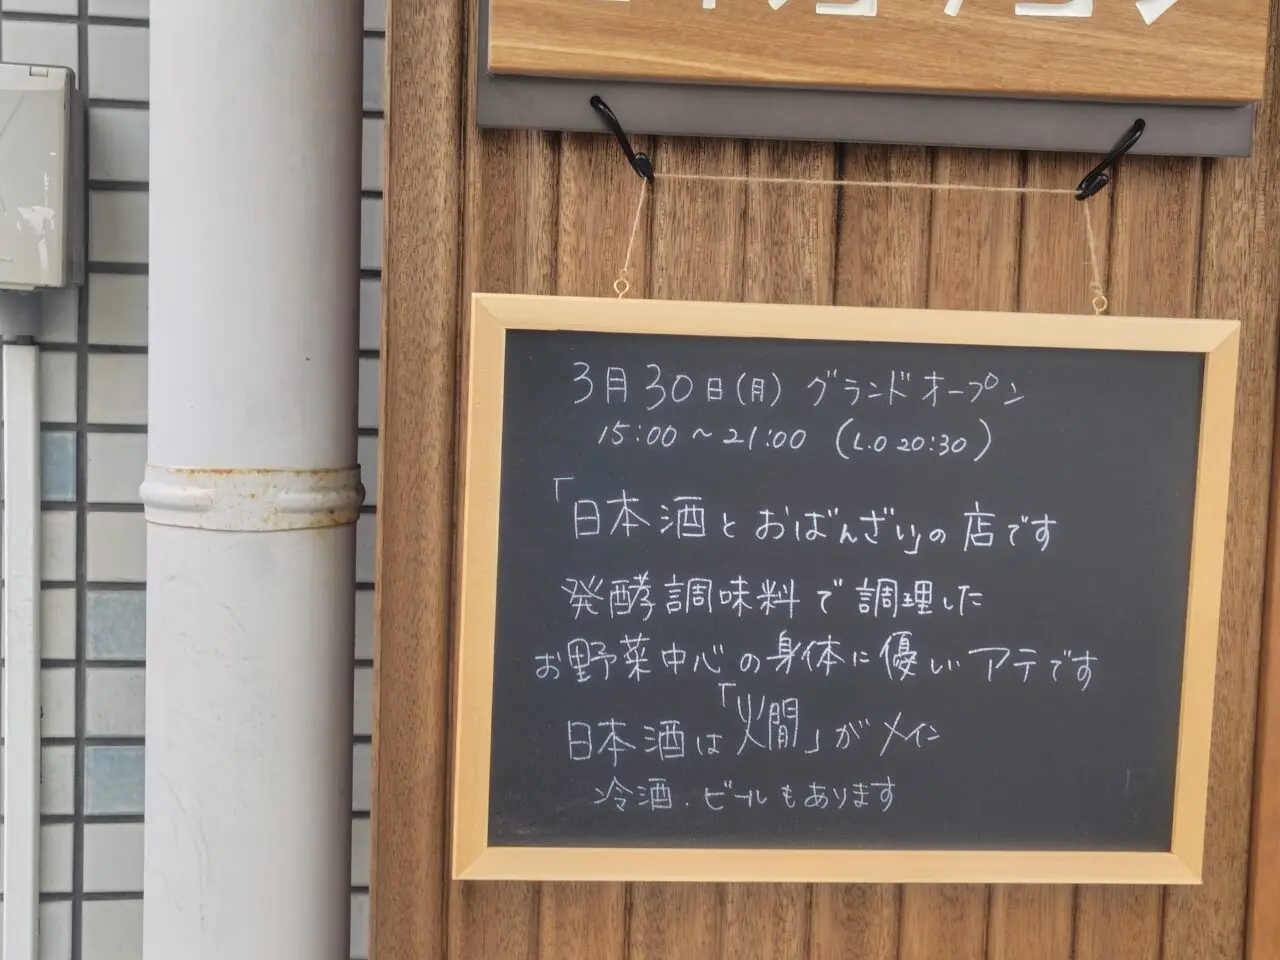 3月30日(月) グランドオープン
15:00～21:00 (L.O 20:30)
「日本酒とおばんざい」の店です
発酵調味料で調理した
お野菜中心の身体に優しいアテです
日本酒は「燗」がメイン
冷酒．ビールもあります